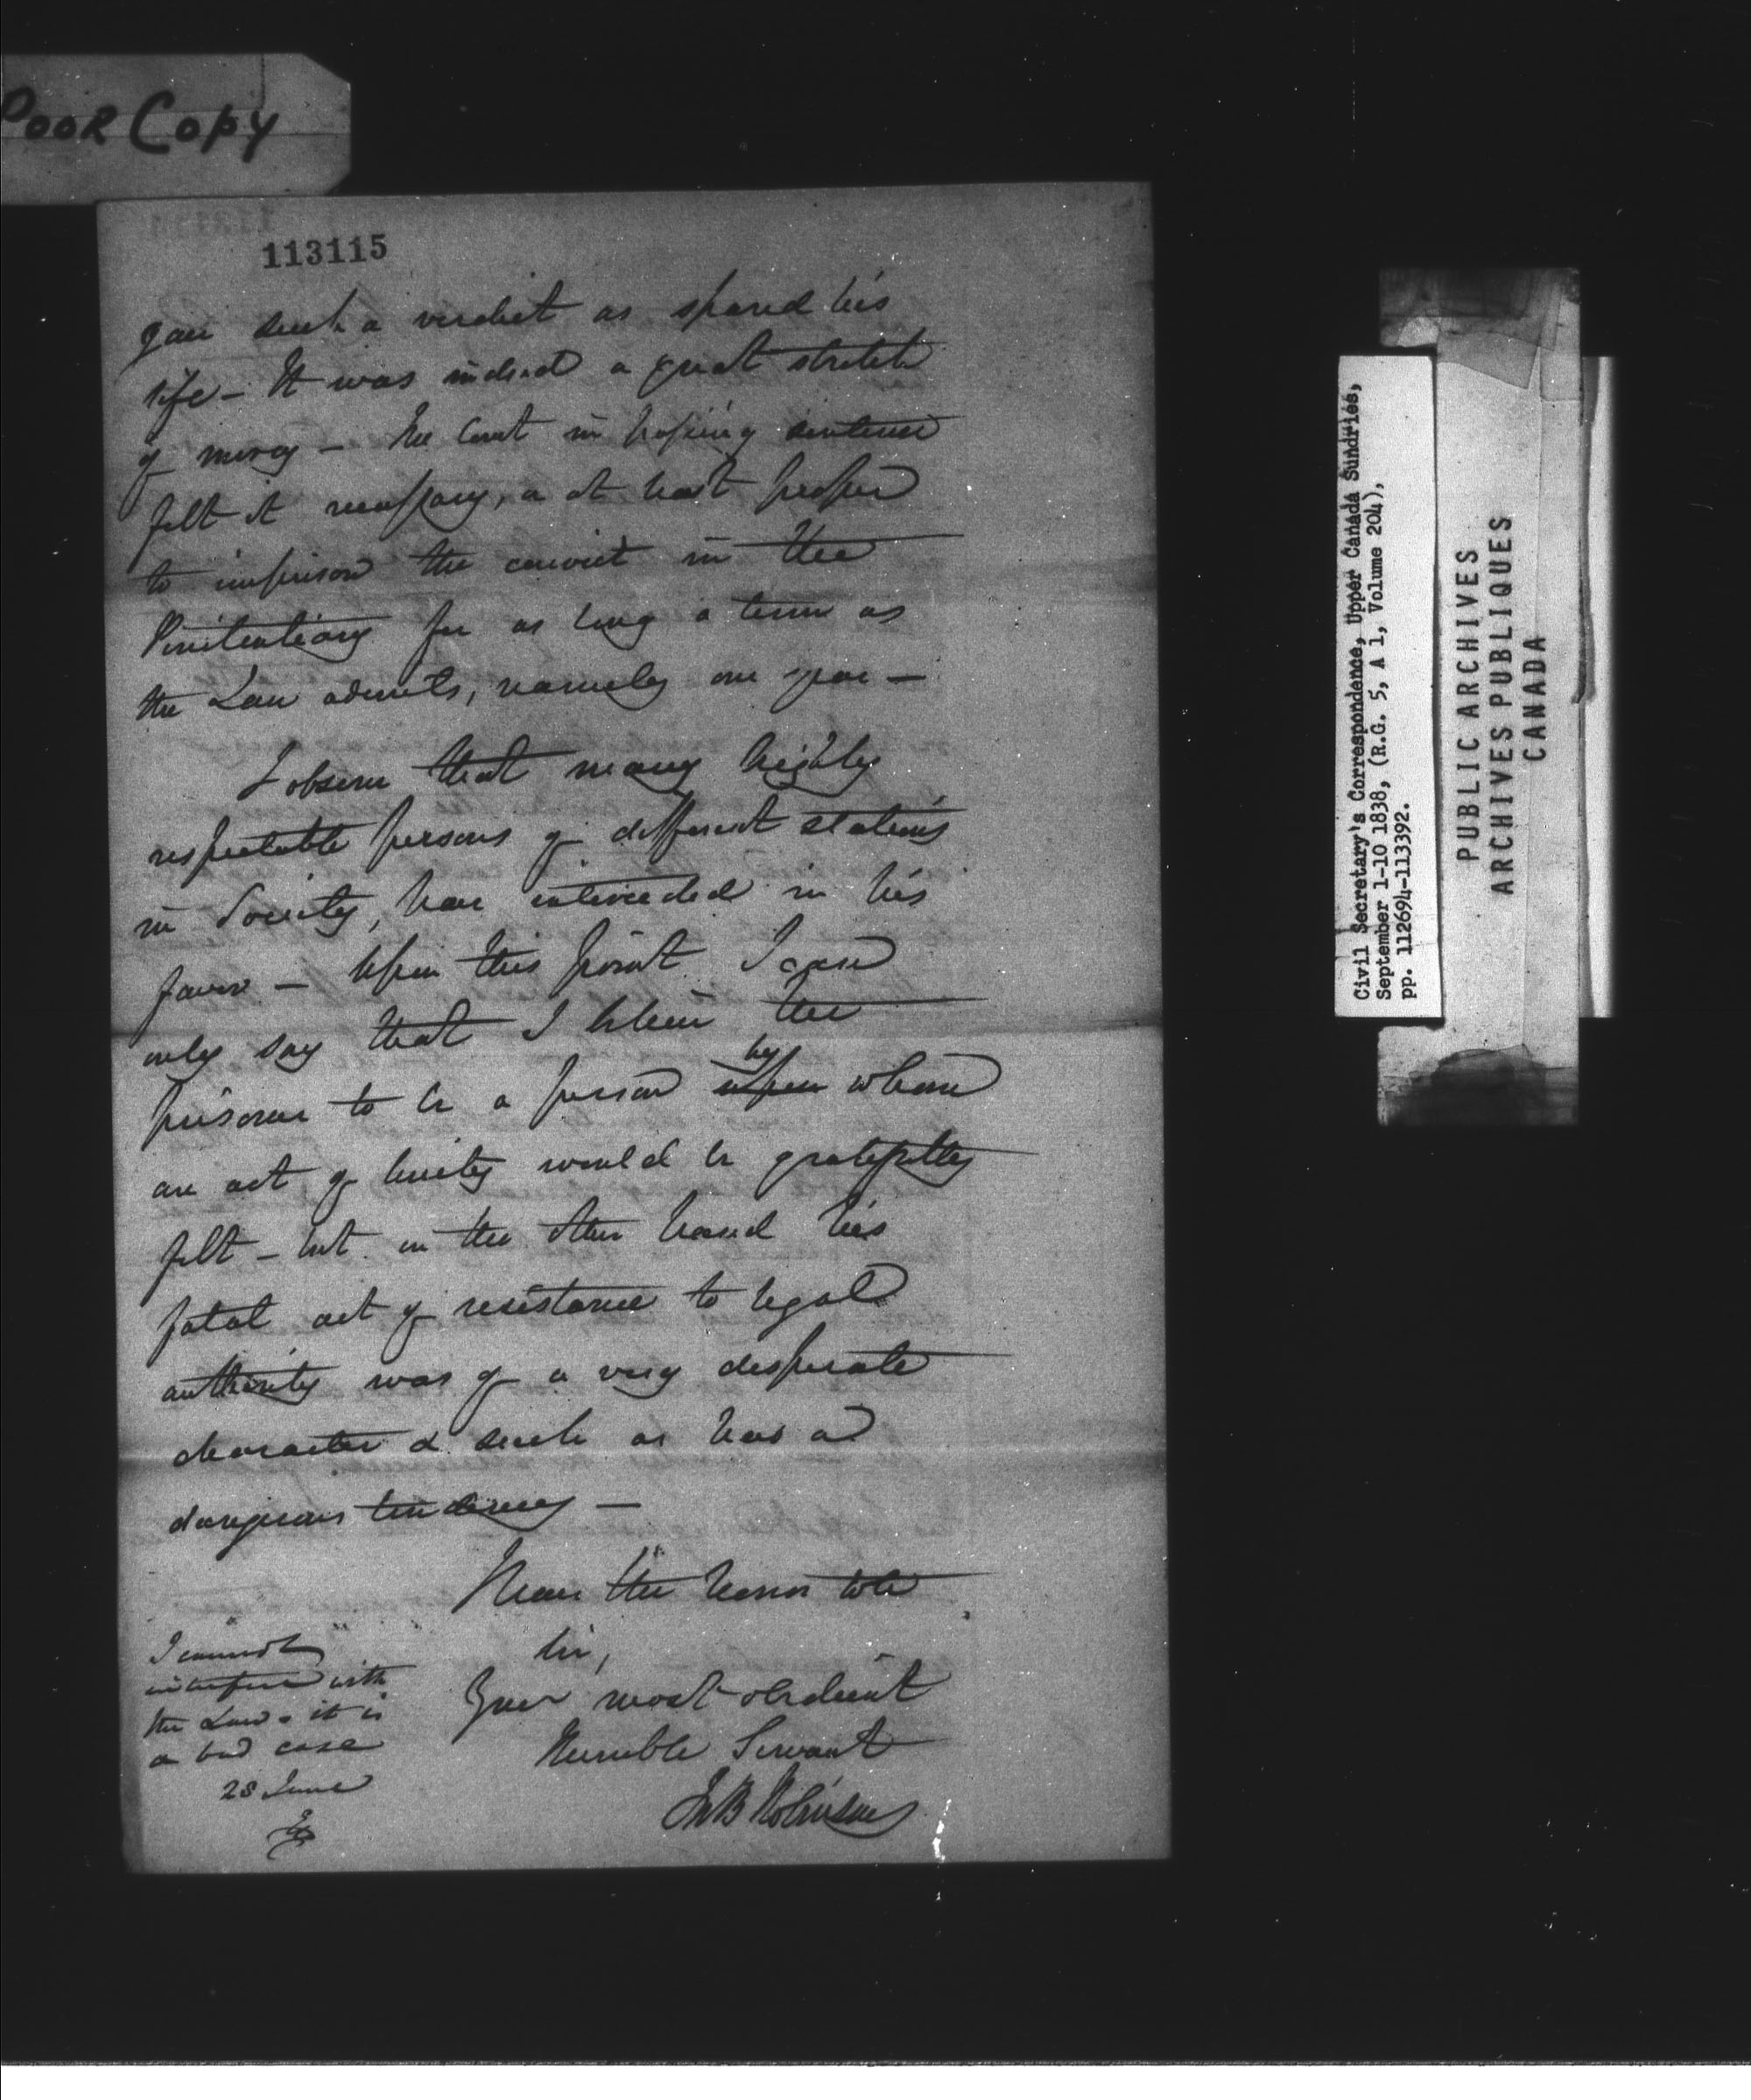 POOR COPY
113115
gave such a verdict as spared his
life – It was indeed a great stretch
of mercy – The Court in passing sentence
felt it necessary, or at least proper
to imprison the convict in the
Penitentiary for as long a term as
the Law admits, namely one year –
I observe that many highly
respectable persons of different stations
in Society, have interceded in his
favor – Upon this point I can
only say that I believe the
prisoner to be a person upon by whom
an act of lenity would be gratefully
felt – but on the other hand his
fatal act of resistance to legal
authority was of a very desperate
character & such as has a
dangerous tendency –
I have the honor to be
Sir,
Your most obedient
Humble Servant
Jno B Robinson
I cannot
interfere with
the Law – it is
a bad case
28 June
Civil Secretary's Correspondence, Upper Canada Sundries,
September 1-10 1838, (R.G. 5, A 1, Volume 204),
pp. 112694-113392.
PUBLIC ARCHIVES
ARCHIVES PUBLIQUES
CANADA